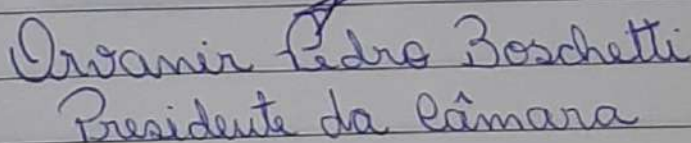 Orvanir Pedro Boschetti
Presidente da Câmara